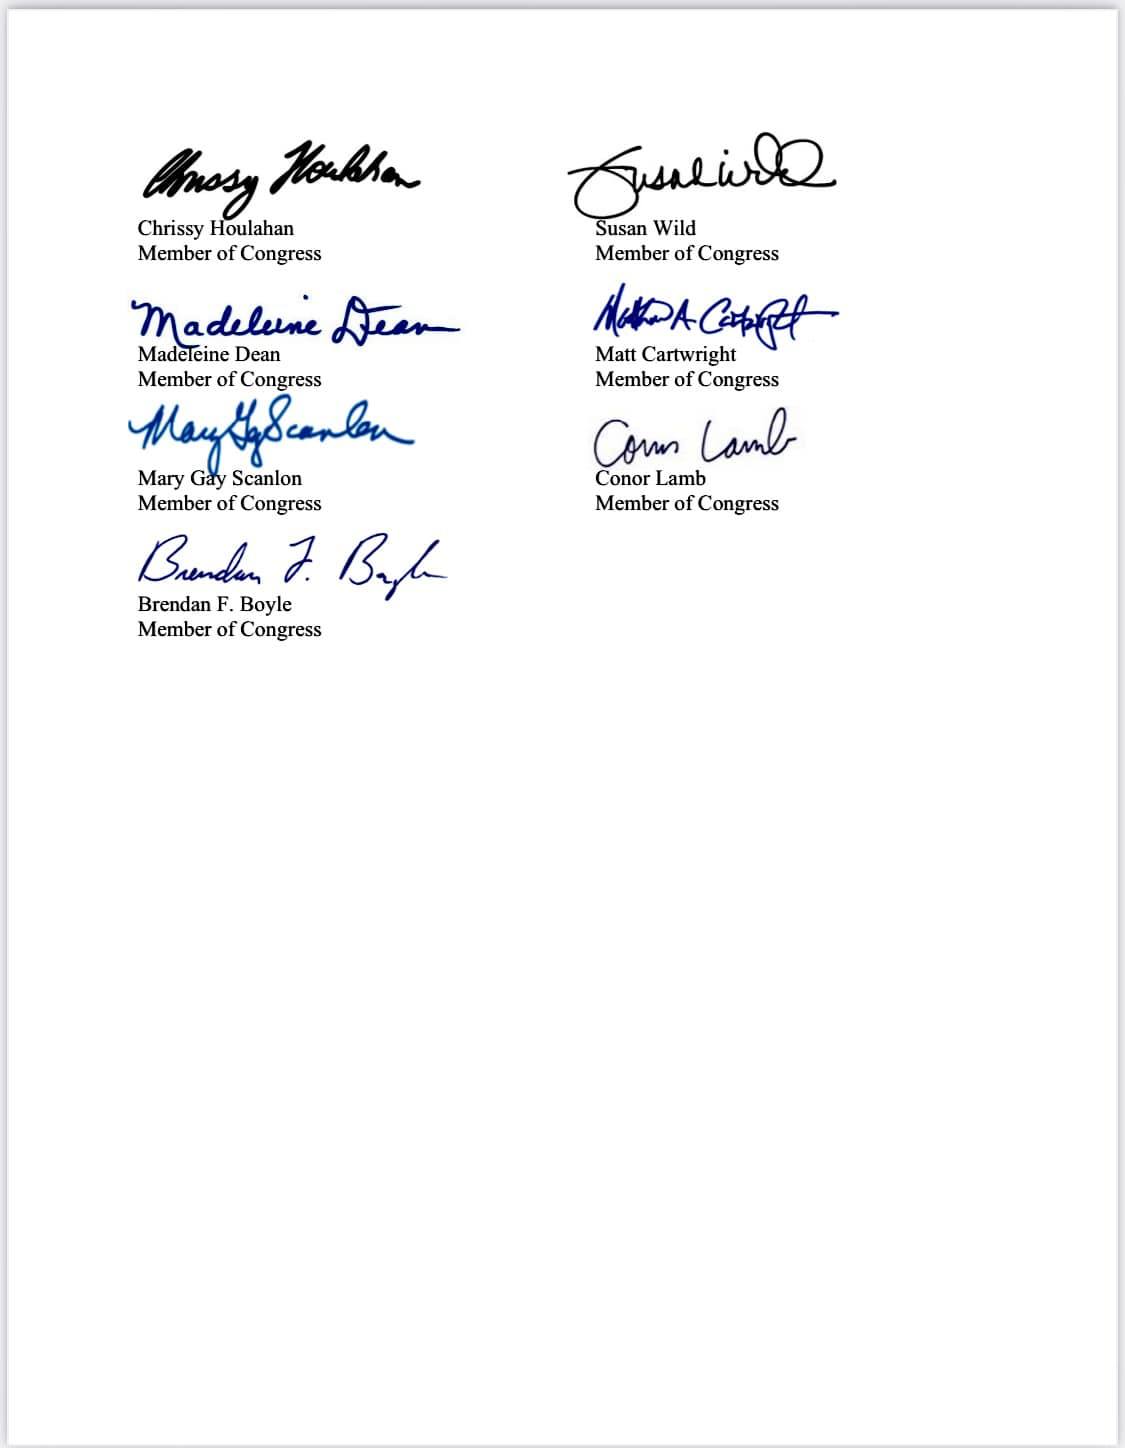 Chrissy Houlahan
Chrissy Houlahan
Member of Congress
Susan Wild
Susan Wild
Member of Congress
Madeleine Dean
Madeleine Dean
Member of Congress
Matthew A. Cartwright
Matt Cartwright
Member of Congress
Mary Gay Scanlon
Mary Gay Scanlon
Member of Congress
Conor Lamb
Conor Lamb
Member of Congress
Brendan F. Boyle
Brendan F. Boyle
Member of Congress